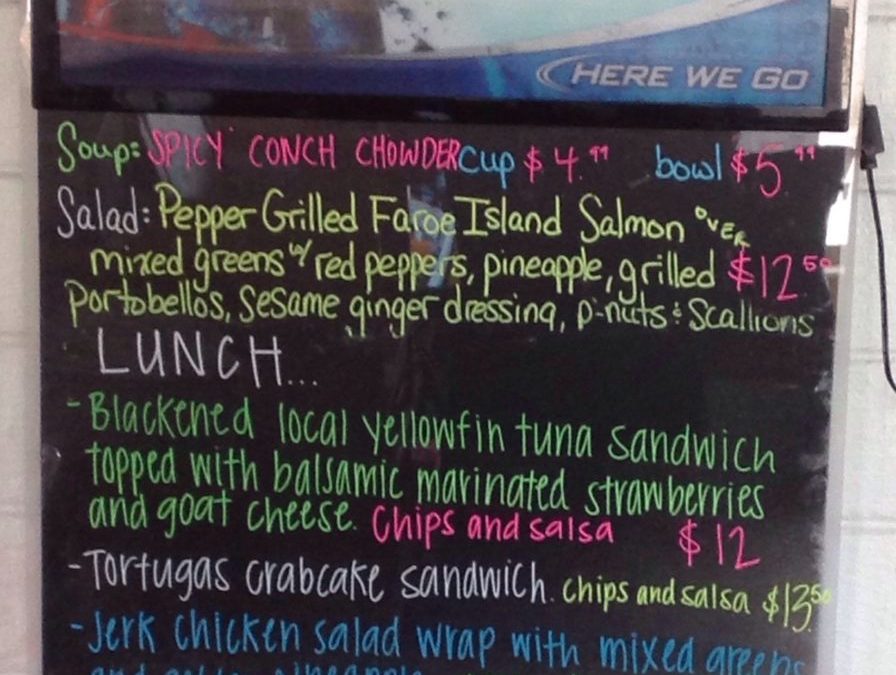 HERE WE GO
Soup: SPICY CONCH CHOWDER cup $4.99 bowl $5.99
Salad: Pepper Grilled Faroe Island Salmon OVER
mixed greens w/ red peppers, pineapple, grilled $12.50
Portobellos, Sesame ginger dressing, p-nuts & Scallions
LUNCH...
- Blackened local yellowfin tuna sandwich
topped with balsamic marinated strawberries
and goat cheese. Chips and salsa $12
- Tortugas crabcake sandwich. chips and salsa $13.50
- Jerk chicken salad wrap with mixed greens
and pineapple